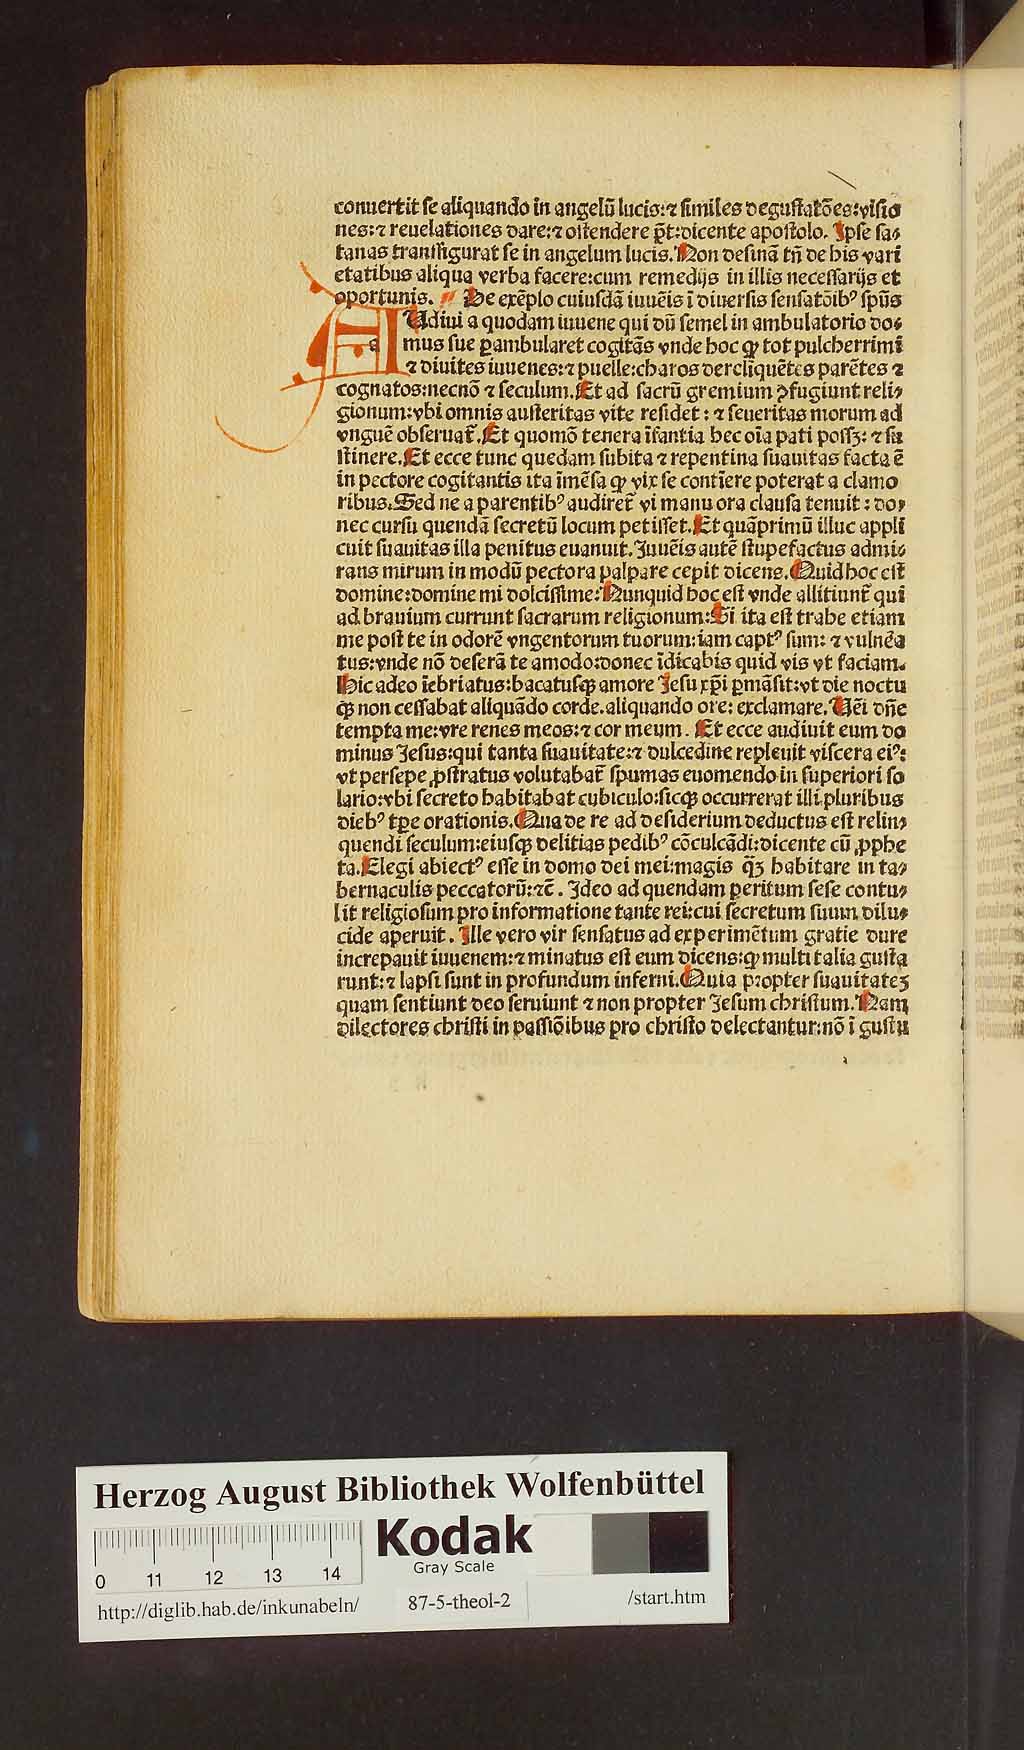 conuertit se aliquando in angelū lucis:⁊ similes degustatōes:visio
nes:⁊ reuelationes dare:⁊ ostendere p̄t:dicente apostolo. Ipse sa⸗
tanas transfigurat se in angelum lucis. Non desinā tn̄ de his vari
etatibus aliqua verba facere:cum remedijs in illis necessarijs et
oportunis. De exēplo cuiusdā iuuēis ī diuersis sensatōibꝰ spūs
AUdiui a quodam iuuene qui dū semel in ambulatorio do⸗
a mus sue ꝑambularet cogitās vnde hoc ꝙ tot pulcherrimi
⁊ diuites iuuenes:⁊ puelle:charos derelīquētes parētes ⁊
cognatos:necnō ⁊ seculum. Et ad sacrū gremium ꝓfugiunt reli⸗
gionum:vbi omnis austeritas vite residet: ⁊ seueritas morum ad
vnguē obseruat̄. Et quomō tenera īfantia hec oīa pati possꝫ: ⁊ su
stinere. Et ecce tunc quedam subita ⁊ repentina suauitas facta ē
in pectore cogitantis ita īmēsa ꝙ vix se contīere poterat a clamo
ribus. Sed ne a parentibꝰ audiret̄ vi manu ora clausa tenuit: do⸗
nec cursu quendā secretū locum petisset. Et quāprimū illuc appli
cuit suauitas illa penitus euanuit. Juuēis autē stupefactus admi⸗
rans mirum in modū pectora palpare cepit dicens. Quid hoc est
domine:domine mi dolcissime: Nunquid hoc est vnde allitiunt̄ qui
ad brauium currunt sacrarum religionum: Si ita est trahe etiam
me post te in odorē vngentorum tuorum:iam captꝰ sum: ⁊ vulnēa
tus:vnde nō deserā te amodo:donec īdicabis quid vis vt faciam.
Hic adeo īebriatus:bacatusqꝫ amore Jesu xp̄i ꝑmāsit:vt die noctu
qꝫ non cessabat aliquādo corde.aliquando ore: exclamare. Uēi dn̄e
tempta me:vre renes meos:⁊ cor meum. Et ecce audiuit eum do
minus Jesus:qui tanta suauitate:⁊ dulcedine repleuit viscera eiꝰ:
vt persepe ꝓstratus volutabat̄ spumas euomendo in superiori so
lario:vbi secreto habitabat cubiculo:sicqꝫ occurrerat illi pluribus
diebꝰ tꝑe orationis. Qua de re ad desiderium deductus est relin⸗
quendi seculum:eiusqꝫ delitias pedibꝰ cōculcādi:dicente cū ꝓphe
ta. Elegi abiectꝰ esse in domo dei mei:magis qꝫ̄ habitare in ta⸗
bernaculis peccatorū:⁊c̄. Ideo ad quendam peritum sese contu⸗
lit religiosum pro informatione tante rei:cui secretum suum dilu⸗
cide aperuit. Ille vero vir sensatus ad experimētum gratie dure
increpauit iuuenem:⁊ minatus est eum dicens:ꝙ multi talia gusta
runt:⁊ lapsi sunt in profundum inferni. Quia propter suauitateꝫ
quam sentiunt deo seruiunt ⁊ non propter Jesum christum. Nam
dilectores christi in passiōibus pro christo delectantur:nō ī gustu
Herzog August Bibliothek Wolfenbüttel
Kodak
Gray Scale
0 11 12 13 14
http://diglib.hab.de/inkunabeln/ 87-5-theol-2 /start.htm